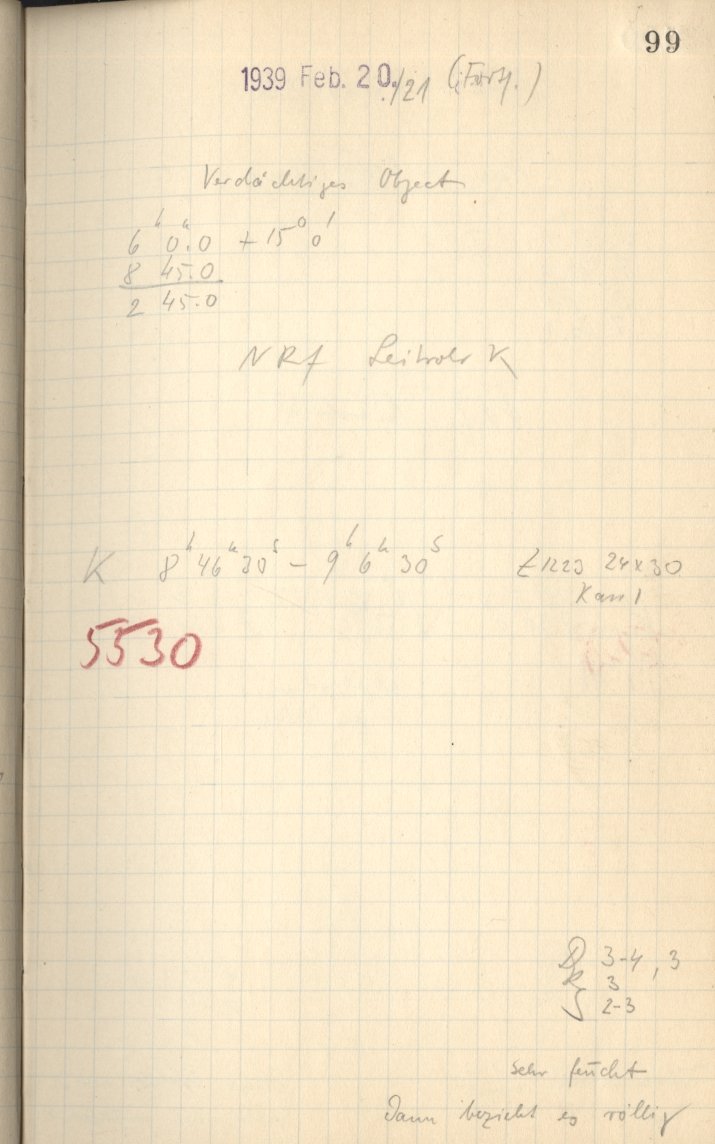 99
1939 Feb. 20./21 (Forts.)
Verdächtiges Object
6ʰ 0ᵐ.0 + 15⁰ 0'
8 45.0
2 45.0
NRf Leitrohr K
K 8ʰ 46ᵐ 30ˢ – 9ʰ 6ᵐ 30ˢ 24 x 30
Kass 1
5530
D 3-4, 3
R 3
S 2-3
sehr feucht
Dann bezieht es völlig